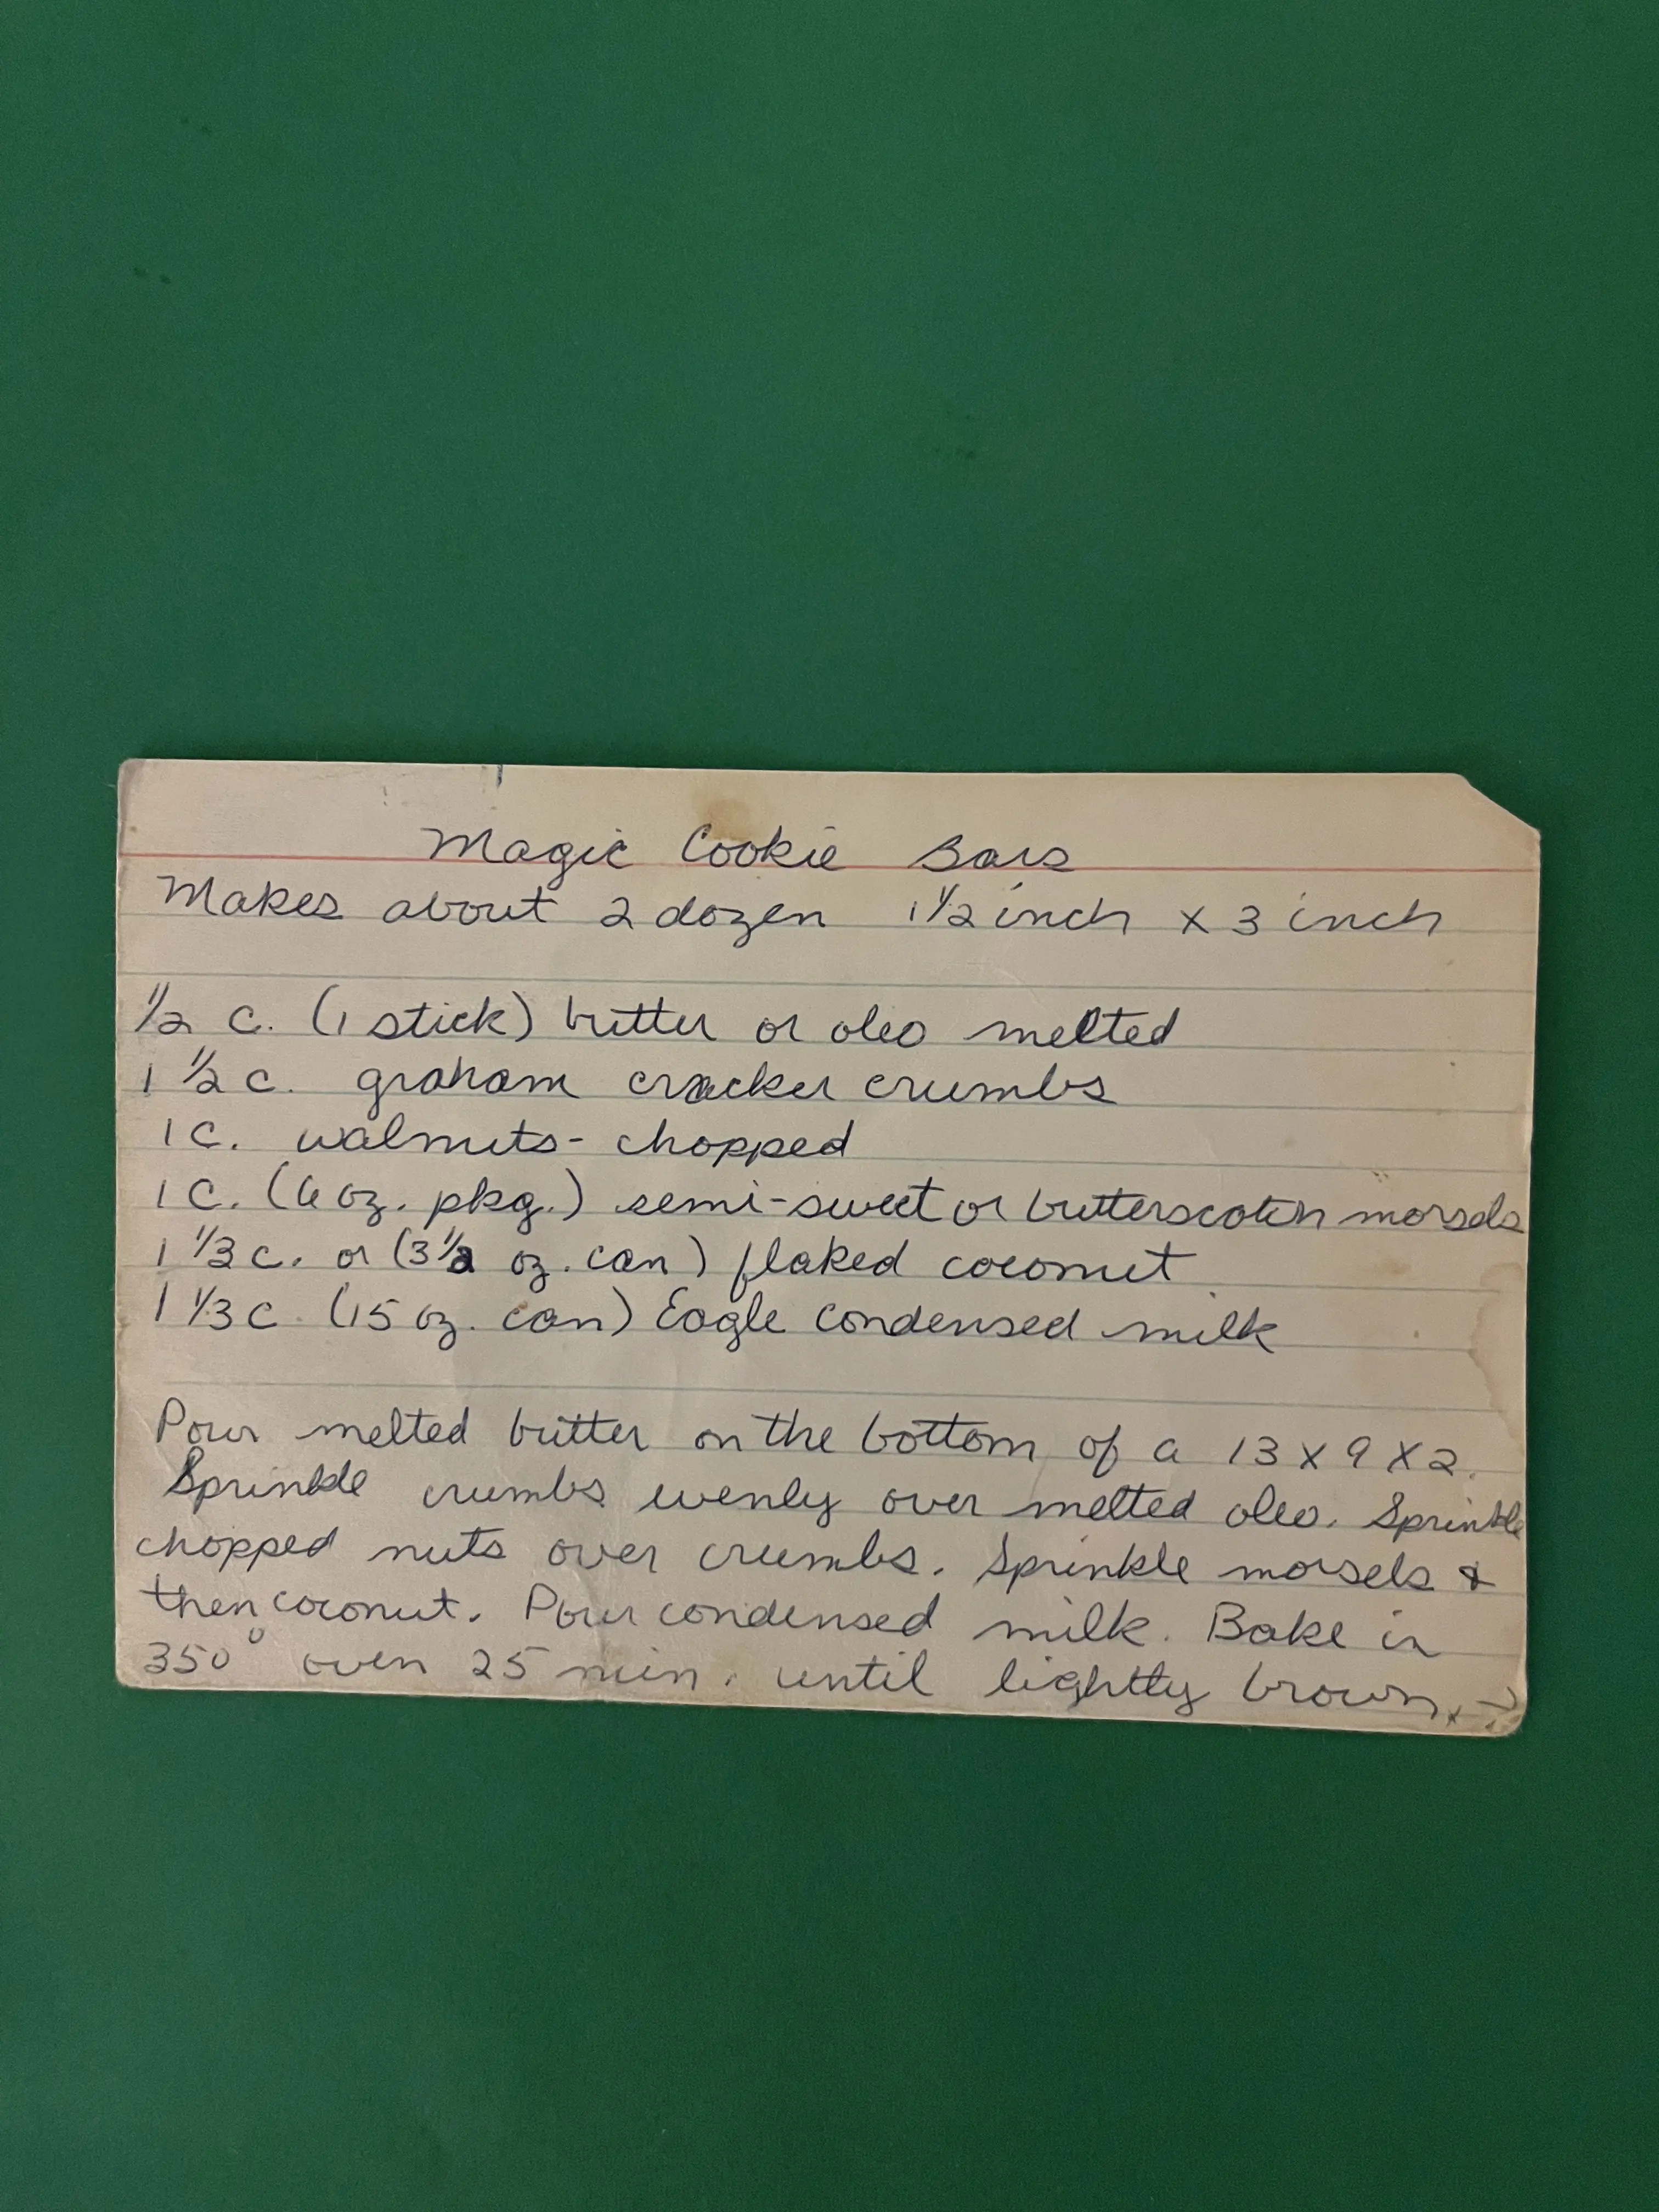 Magic Cookie Bars
Makes about 2 dozen 1 1/2 inch x 3 inch
1/2 c. (1 stick) butter or oleo melted
1 1/2 c. graham cracker crumbs
1 c. walnuts - chopped
1 c. (6 oz. pkg.) semi-sweet or butterscotch morsels
1 1/3 c. or (3 1/2 oz. can) flaked coconut
1 1/3 c. (15 oz. can) Eagle condensed milk
Pour melted butter on the bottom of a 13 x 9 x 2.
Sprinkle crumbs evenly over melted oleo. Sprinkle
chopped nuts over crumbs. Sprinkle morsels &
then coconut. Pour condensed milk. Bake in
350° oven 25 min. until lightly brown. →